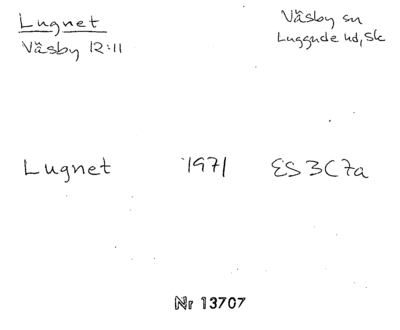 Lugnet
Väsby 12:11
Väsby sn
Luggude hd, Sk
Lugnet 1971 ES 3C7a
Nr 13707